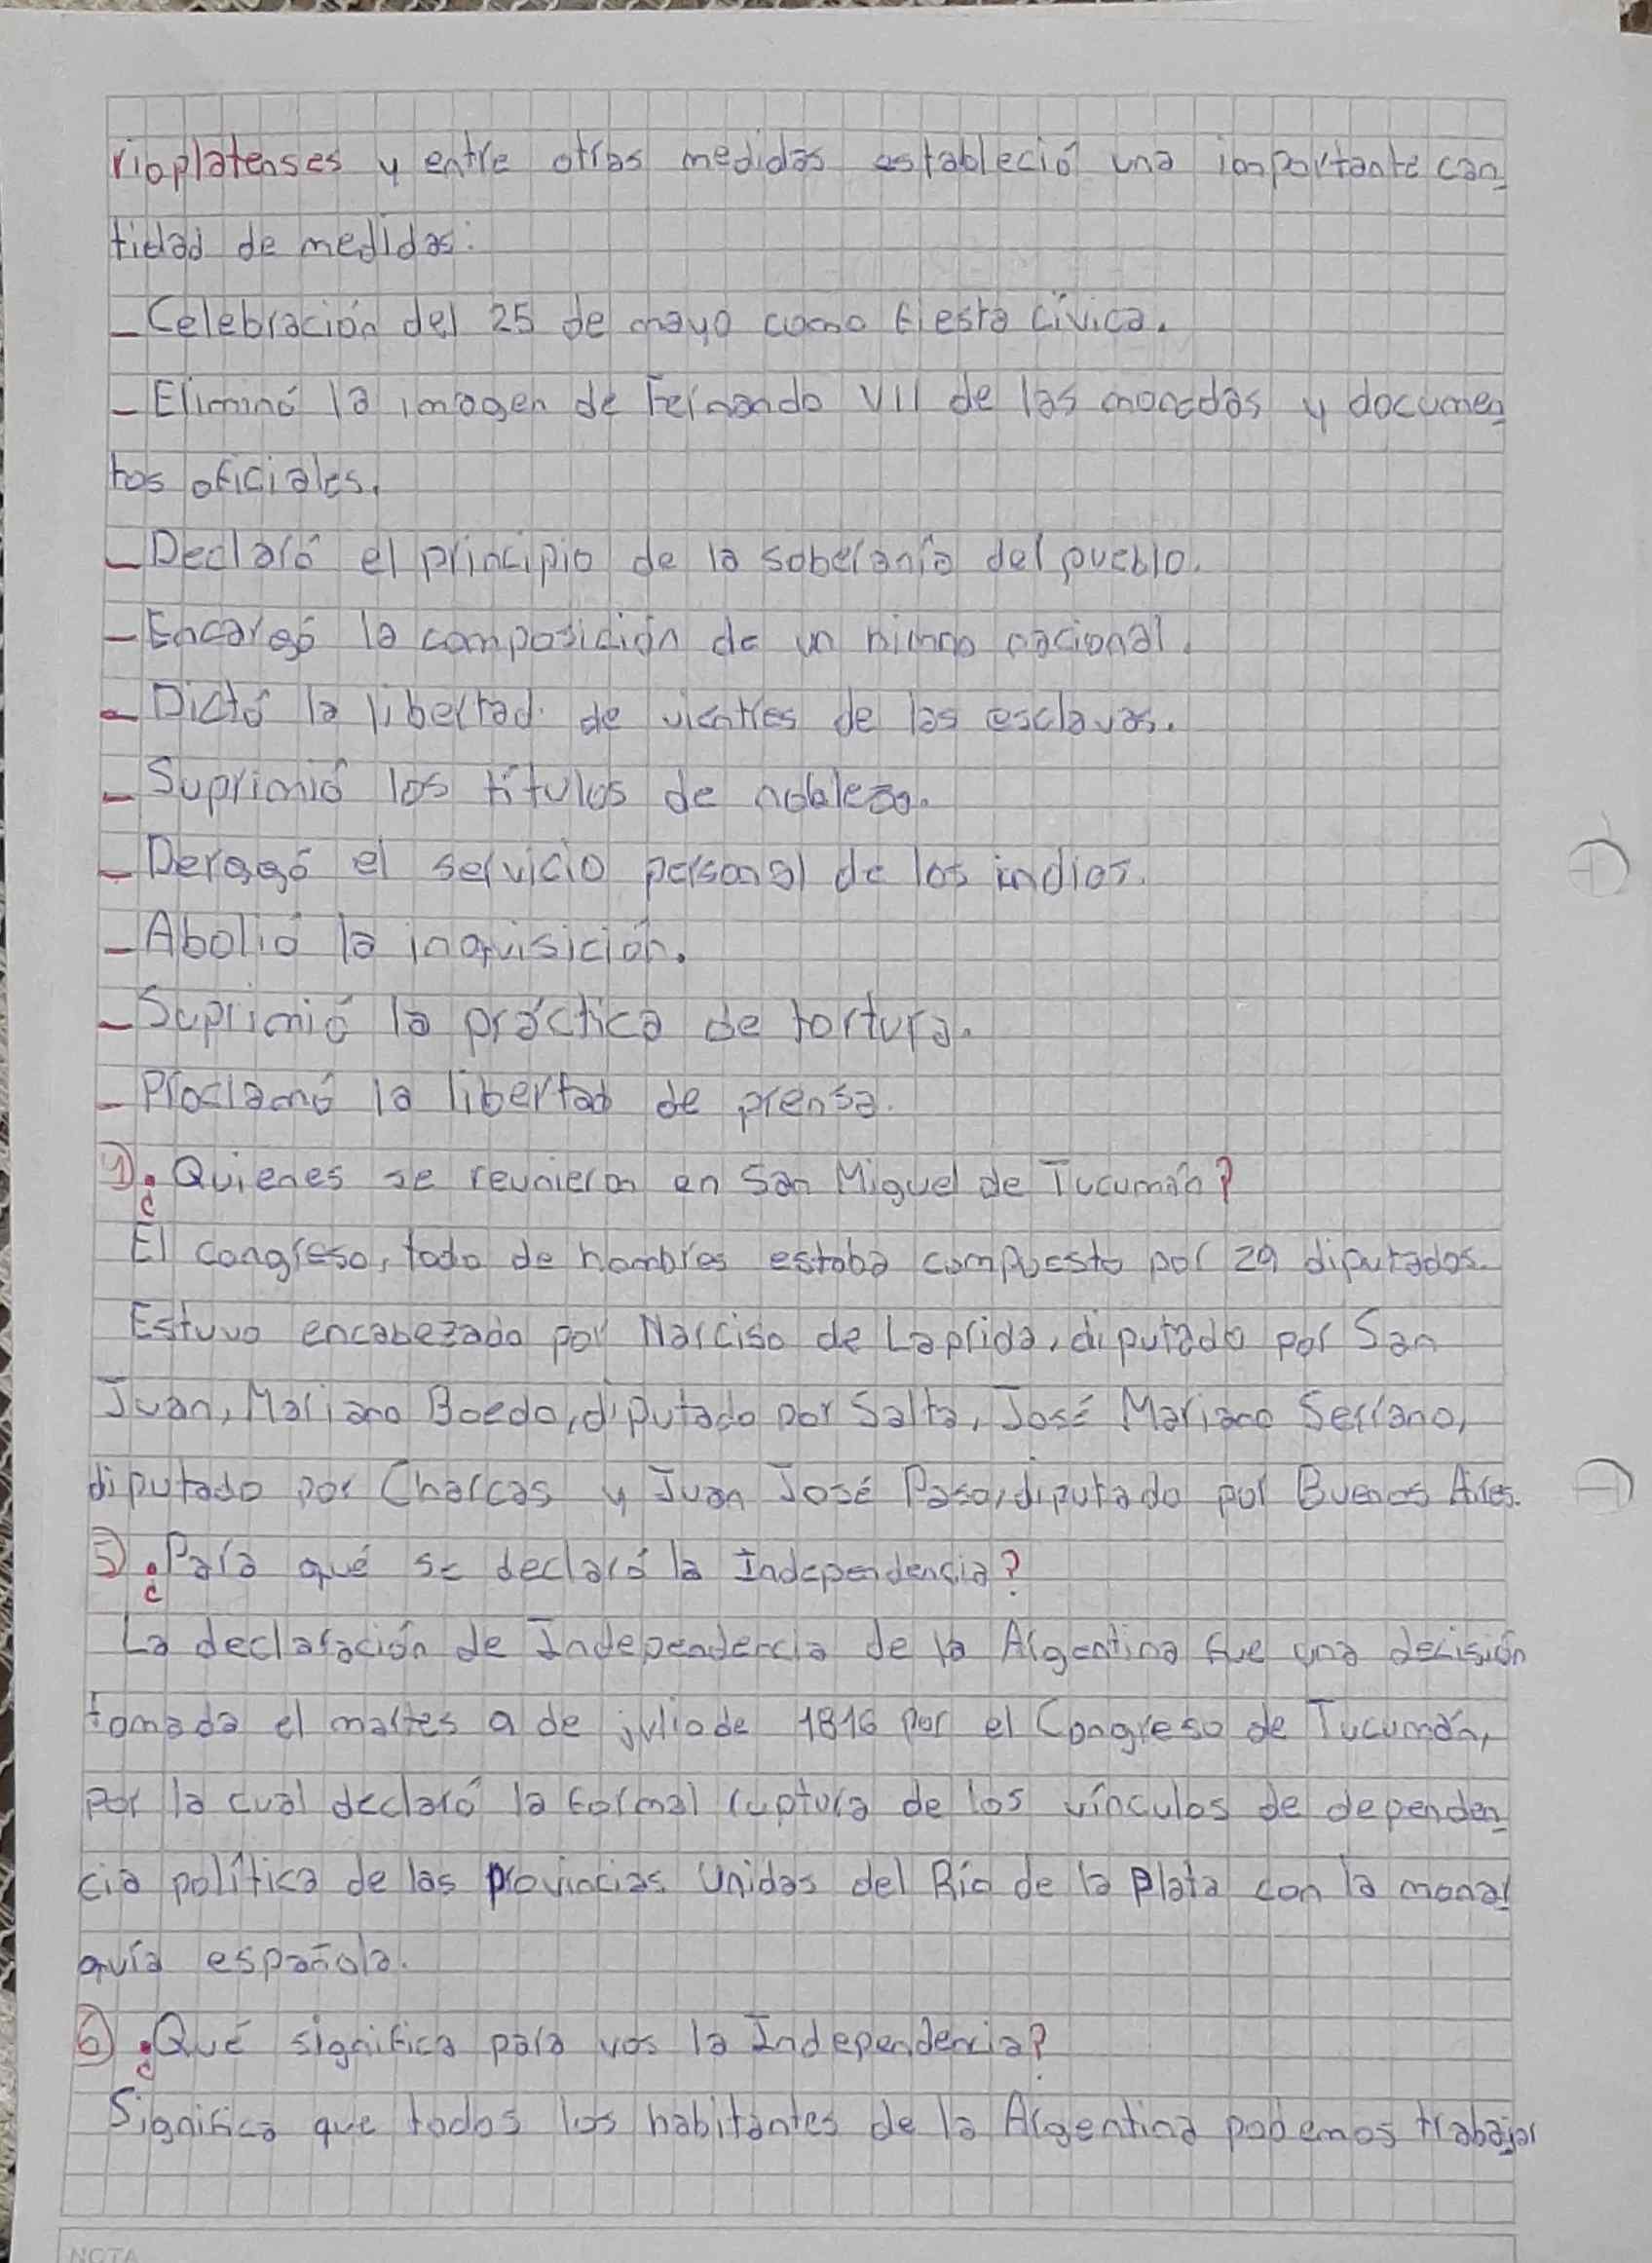 rioplatenses y entre otras medidas estableció una importante can-
tidad de medidas:
- Celebración del 25 de mayo como fiesta cívica.
- Eliminó la imagen de Fernando VII de las monedas y documen-
tos oficiales.
- Declaró el principio de la soberanía del pueblo.
- Encargó la composición de un himno nacional.
- Dictó la libertad de vientres de las esclavas.
- Suprimió los títulos de nobleza.
- Derogó el servicio personal de los indios.
- Abolió la inquisición.
- Suprimió la práctica de tortura.
- Proclamó la libertad de prensa.
4) ¿Quienes se reunieron en San Miguel de Tucumán?
El congreso, todo de hombres estaba compuesto por 29 diputados.
Estuvo encabezado por Narciso de Laprida, diputado por San
Juan, Mariano Boedo, diputado por Salta, José Mariano Serrano,
diputado por Charcas y Juan José Paso, diputado por Buenos Aires.
5) ¿Para qué se declaró la Independencia?
La declaración de Independencia de la Argentina fue una decisión
tomada el martes 9 de julio de 1816 por el Congreso de Tucumán,
por la cual declaró la formal ruptura de los vínculos de dependen-
cia política de las provincias Unidas del Río de la Plata con la monar-
quía española.
6) ¿Qué significa para vos la Independencia?
Significa que todos los habitantes de la Argentina podemos trabajar
NOTA